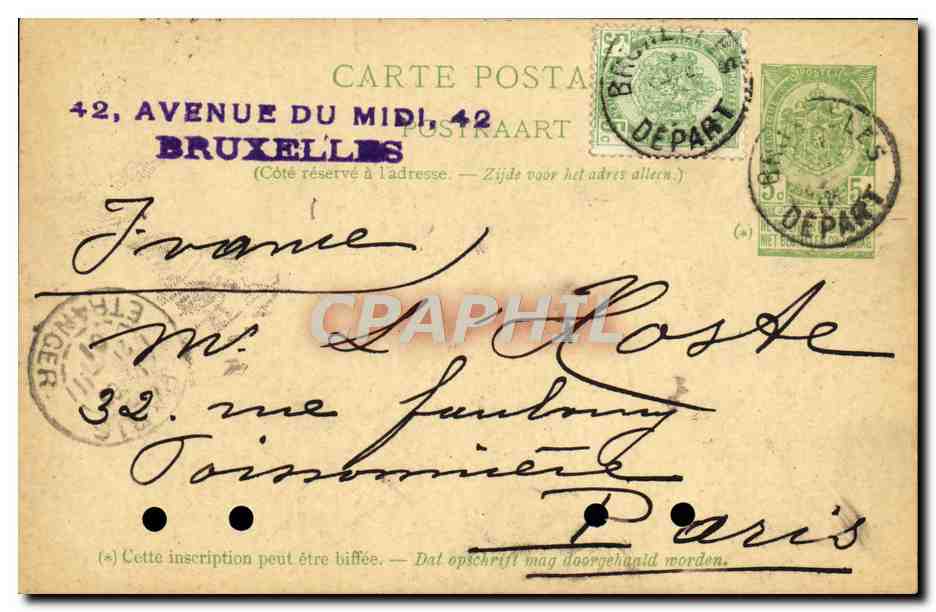 CARTE POSTA
42, AVENUE DU MIDI, 42
POSTKAART
BRUXELLES
(Côté réservé à l'adresse. — Zijde voor het adres alleen.)
DEPART
DEPART
5c
(*)
France
ETRANGER
CPAPHIL
Mr. L'Hoste
32. rue faubourg
Poissonnière
Paris
(*) Cette inscription peut être biffée. — Dat opschrift mag doorgehaald worden.